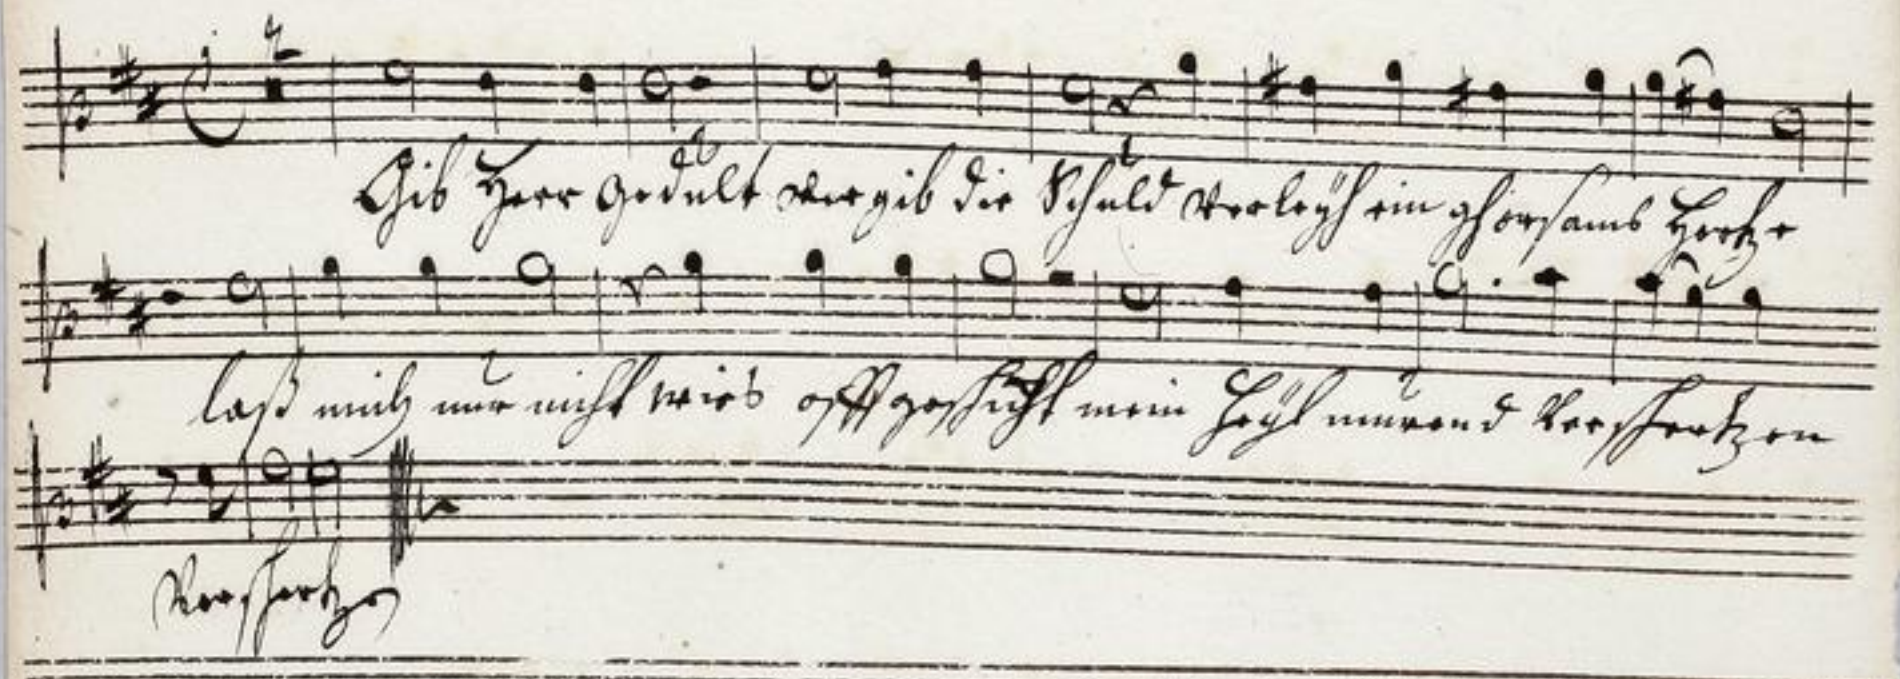 Gib Herr gedult vergib die Schuld Verleÿh ein ghorsams Hertze
laß mich nur nicht wies offt geschicht mein Heÿl murrend Verschertzen
Verschertzen